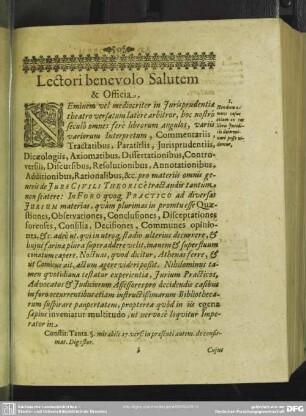 Lectori benevolo Salutem
& Officia.
NEminem vel mediocriter in Jurisprudentiæ
theatro versatum latere arbitror, hoc nostro
seculo omnes ferè librorum angulos, variis
variorum Interpretum, Commentariis
Tractatibus, Paratitlis, Jurisprudentiis,
Dicæologiis, Axiomatibus, Dissertationibus, Contro-
versiis, Discursibus, Resolutionibus, Annotationibus,
Additionibus, Rationalibus, &c. pro materiis omnis ge-
neris de JURE CIVILI THEORICE tractandis tantum-
non scatere: In FORO quoq; PRACTICO ad diversas
JURIUM materias, quàm plurimas in promtu esse Quæ-
stiones, Observationes, Conclusiones, Disceptationes
forenses, Consilia, Decisiones, Communes opinio-
nes, &c. adeò ut, qui in utroq; stadio calamo decurrere, &
hujus farinæ plura superaddere velit, inanem & superfluum
conatum capere, Noctuas, quod dicitur, Athenas ferre, &
ut Comicus ait, actum agere videri possit. Nihilominus ta-
men quotidiana testatur experientia, Jurium Practicos,
Advocatos & Judiciorum Assessores pro decidendis casibus
in foro occurrentibus etiam instructissimarum Bibliotheca-
rum suspirare paupertatem, propterea quòd in iis egena
sæpius inveniatur multitudo, ut nervosè loquitur Impe-
rator in.
Constit: Tanta. 5. mirabile 17. vers: in præsenti autem. de confir-
mat. Digestor.
b
Cujus
1.